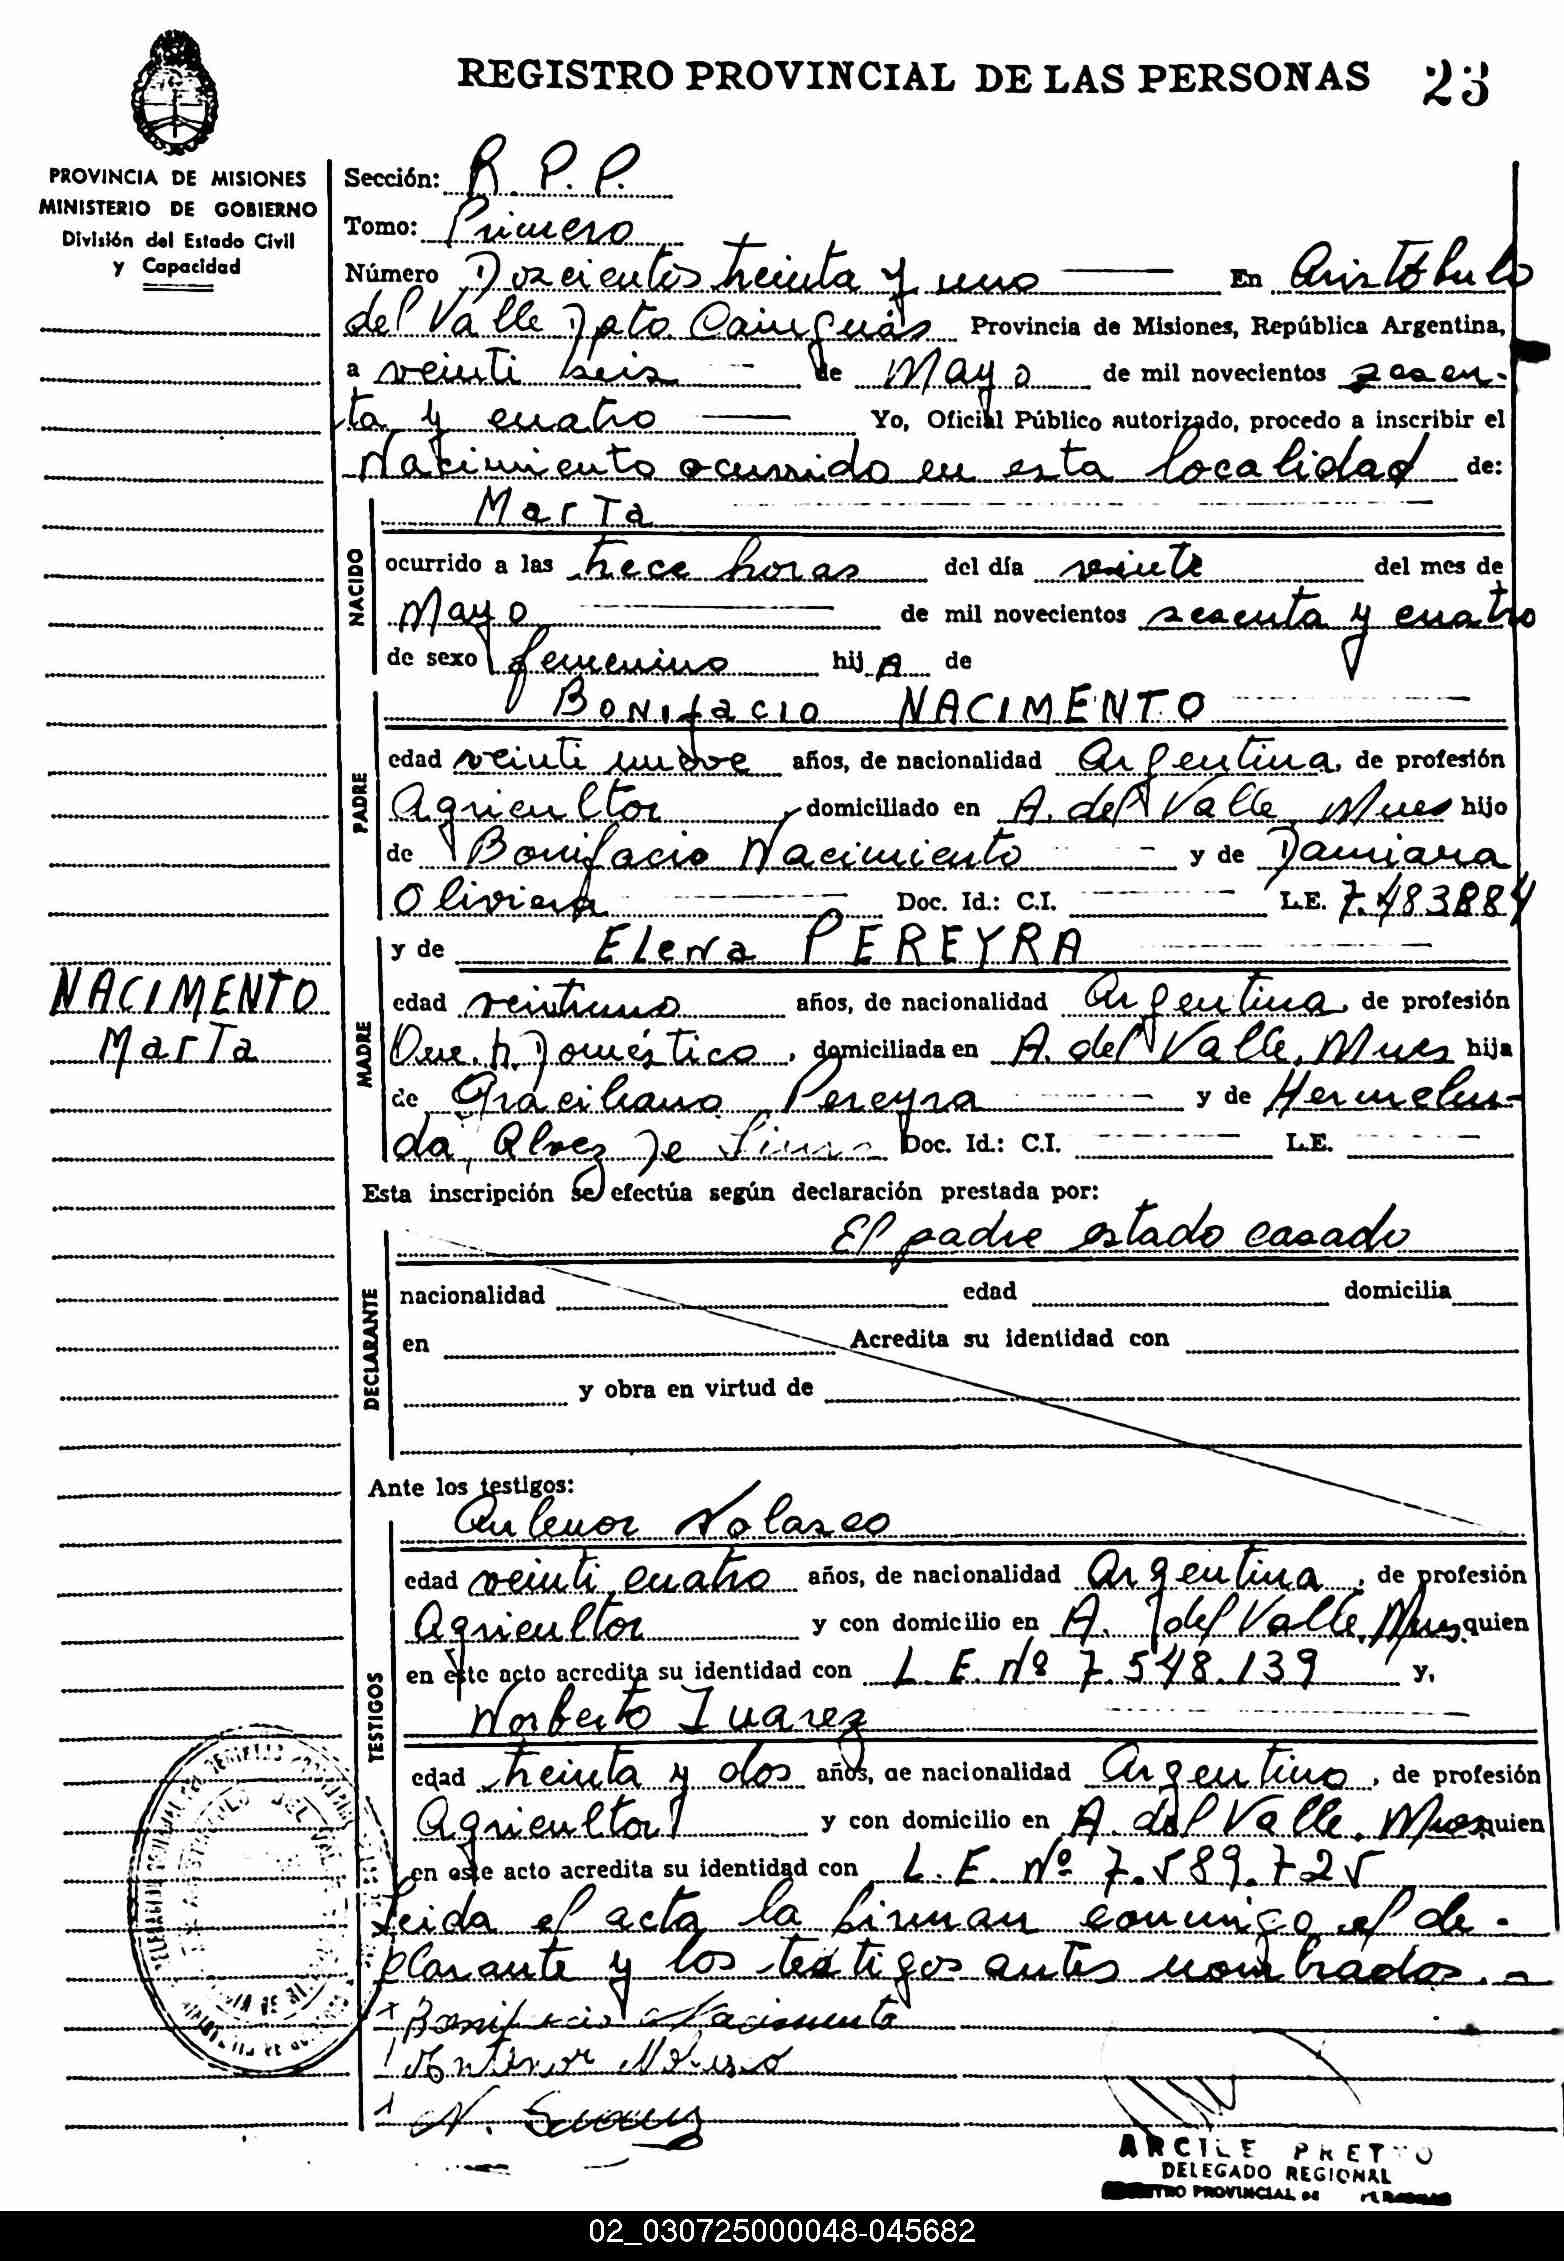 REGISTRO PROVINCIAL DE LAS PERSONAS 23
PROVINCIA DE MISIONES
MINISTERIO DE GOBIERNO
División del Estado Civil
y Capacidad
Sección: R. P. P.
Tomo: Primero
Número Dozcientos treinta y uno En Aristóbulo
del Valle Dpto. Cainguás Provincia de Misiones, República Argentina,
a veinti seis de Mayo de mil novecientos sesen-
ta y cuatro Yo, Oficial Público autorizado, procedo a inscribir el
Nacimiento ocurrido en esta localidad de:
NACIDO
Marta
ocurrido a las trece horas del día veinte del mes de
Mayo de mil novecientos sesenta y cuatro
de sexo femenino hij A de
PADRE
Bonifacio NACIMENTO
edad veinti nueve años, de nacionalidad Argentina, de profesión
Agricultor domiciliado en A. del Valle, Mnes hijo
de Bonifacio Nacimiento y de Damiana
Oliviera Doc. Id.: C.I. L.E. 7.483884
MADRE
y de Elena PEREYRA
NACIMENTO
Marta
edad veintiuno años, de nacionalidad Argentina, de profesión
Doméstico, domiciliada en A. del Valle, Mnes hija
de Graciliano Pereyra y de Hermelin-
da, Alvez De Doc. Id.: C.I. L.E.
Esta inscripción se efectúa según declaración prestada por:
DECLARANTE
El padre estado casado
nacionalidad edad domicilia
en Acredita su identidad con
y obra en virtud de
Ante los testigos:
TESTIGOS
Antenor Nolasco
edad veinti cuatro años, de nacionalidad Argentina, de profesión
Agricultor y con domicilio en A. del Valle, Mnes. quien
en este acto acredita su identidad con L. E. Nº 7.548.139 y,
Norberto Juarez
edad treinta y dos años, de nacionalidad Argentino, de profesión
Agricultor y con domicilio en A. del Valle, Mnes quien
en este acto acredita su identidad con L. E. Nº 7.589.725
Leida el acta la firman conmigo el de-
clarante y los testigos antes nombrados.
Bonifacio Nacimento
Antenor Nolasco
N. Juarez
DELEGADO REGIONAL
02_030725000048-045682